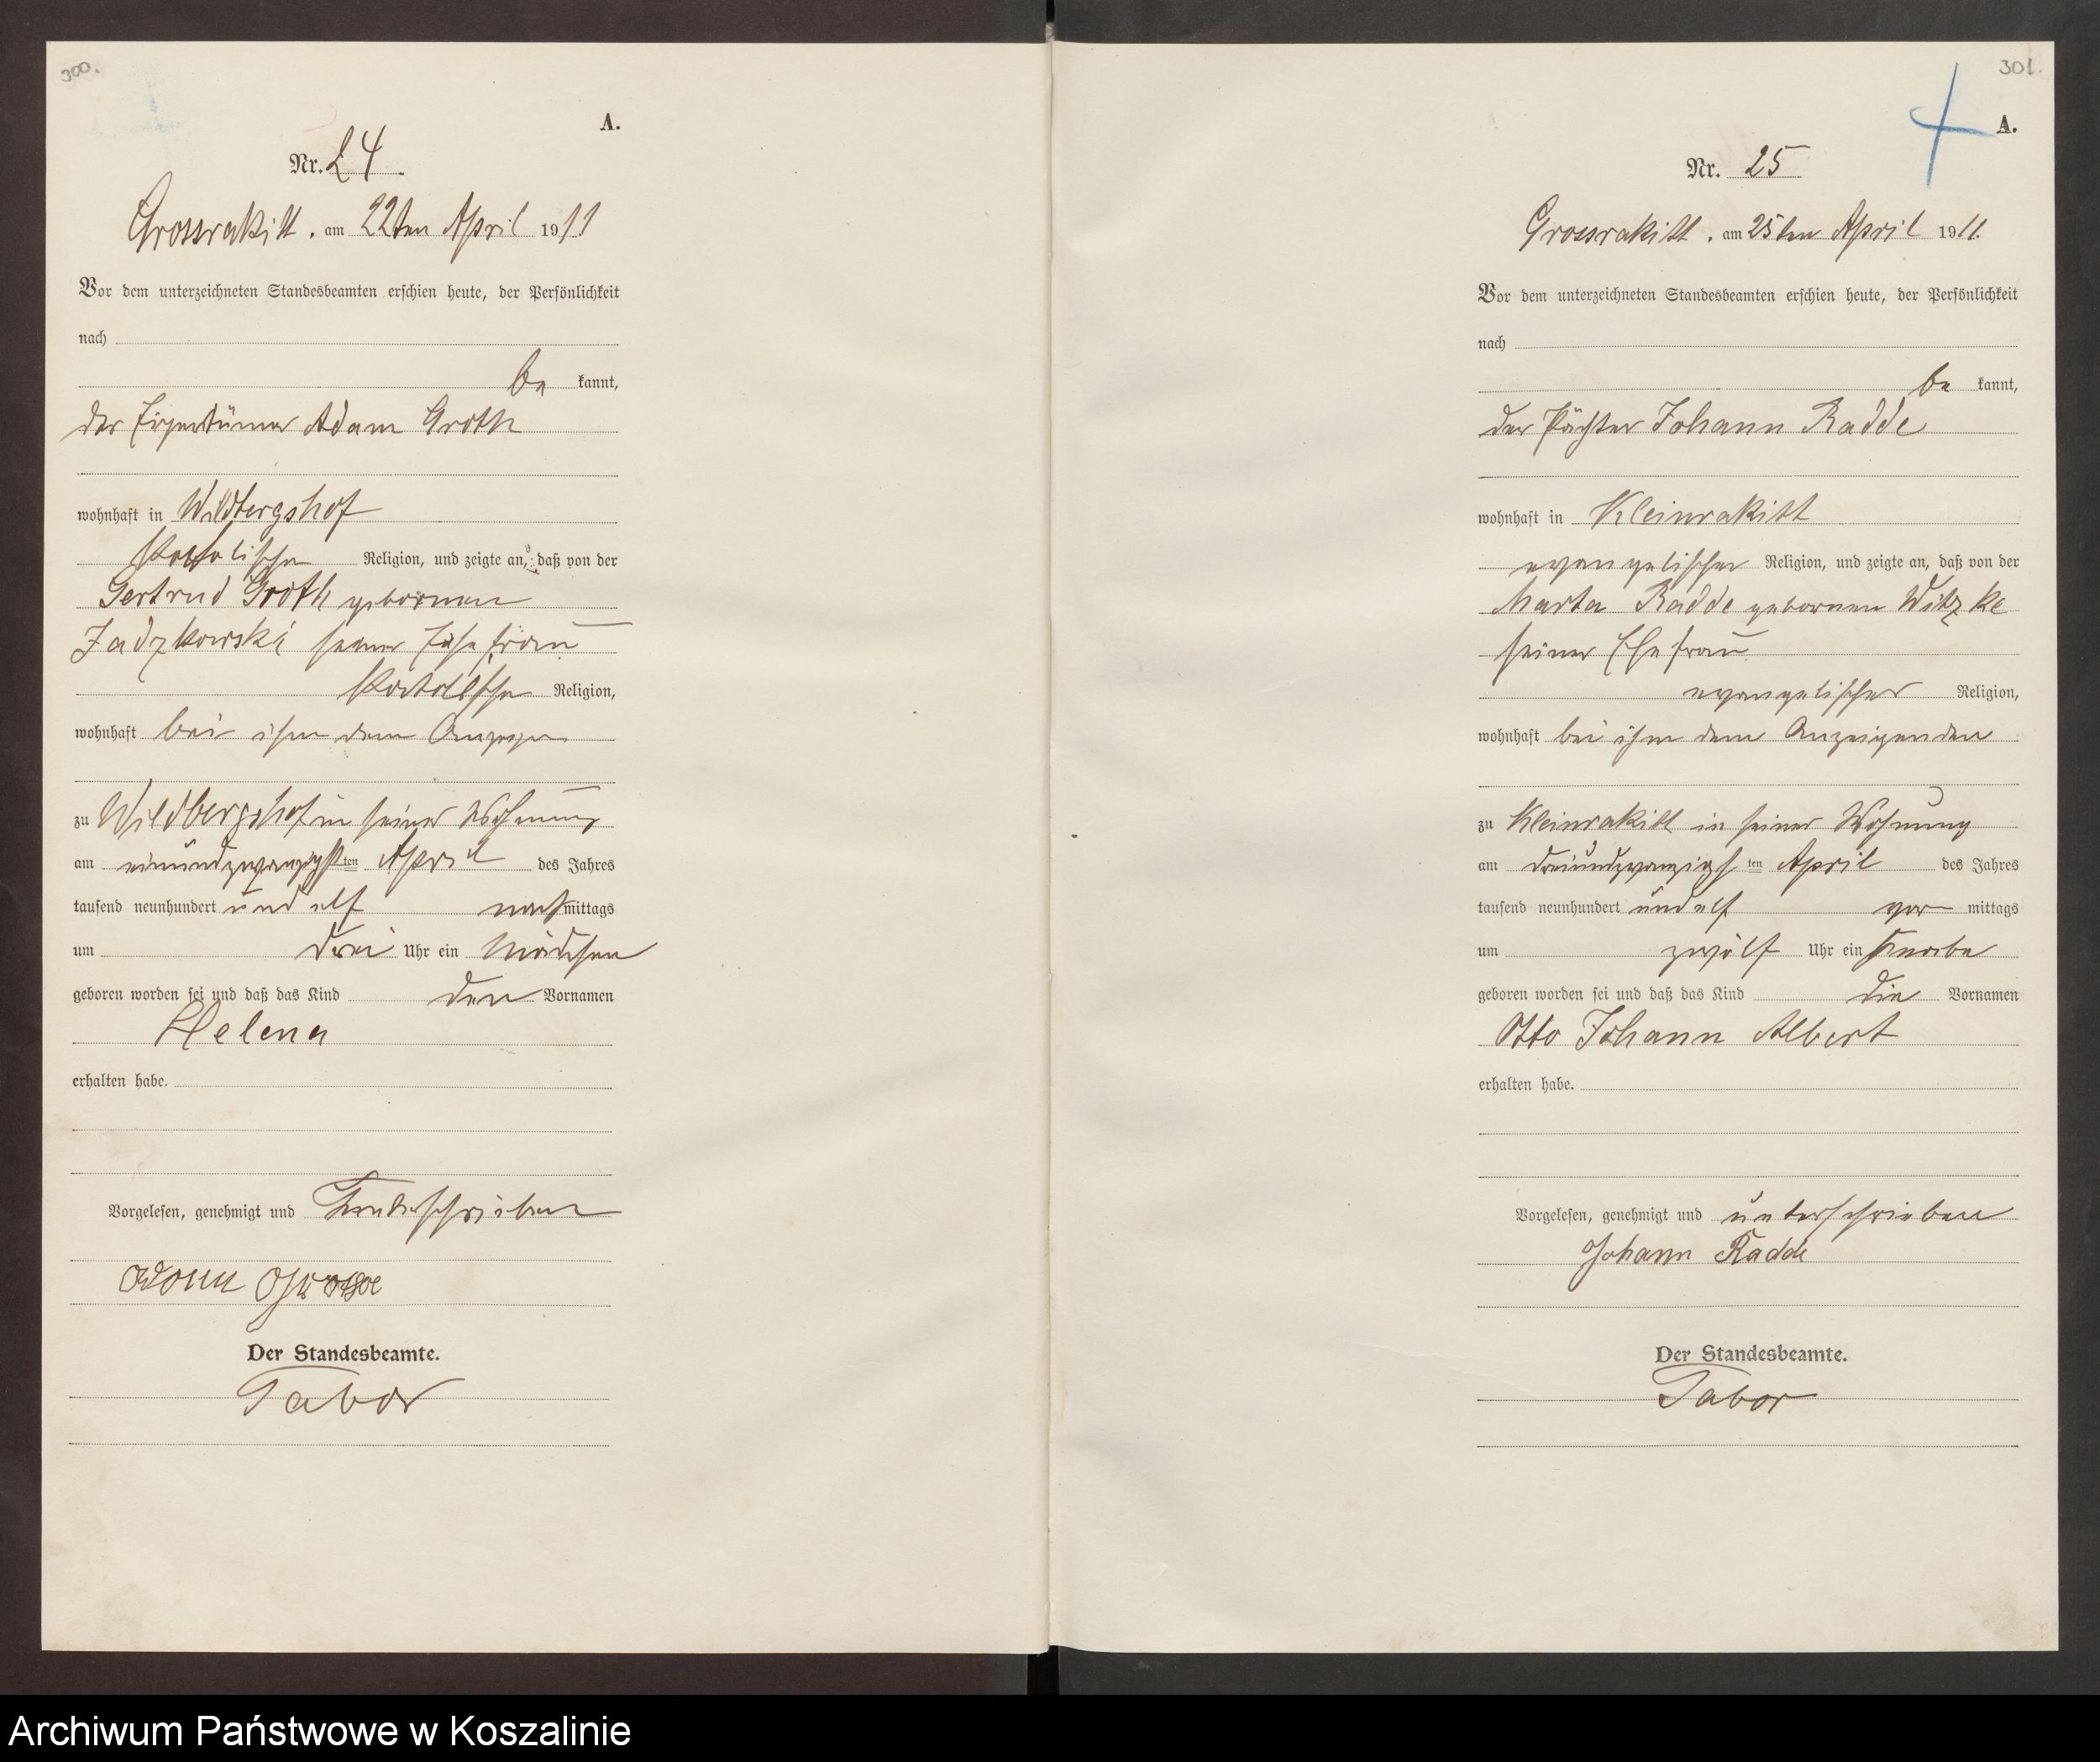 300.
A.
Nr. 24
Grossrakitt, am 22ten April 1911
Vor dem unterzeichneten Standesbeamten erschien heute, der Persönlichkeit
nach
be kannt,
der Eigentümer Adam Groth
wohnhaft in Wildbergshof
Religion, und zeigte an, daß von der
Gertrud Groth geborenen
Jadzkowski seiner Ehefrau
Religion,
wohnhaft bei ihm dem
zu Wildbergshof in seiner Wohnung
am einundzwanzigsten April des Jahres
tausend neunhundert und elf nachmittags
um drei Uhr ein Mädchen
geboren worden sei und daß das Kind den Vornamen
Helena
erhalten habe.
Vorgelesen, genehmigt und
Der Standesbeamte.
Tabor
301.
A.
Nr. 25
Grossrakitt, am 25ten April 1911.
Vor dem unterzeichneten Standesbeamten erschien heute, der Persönlichkeit
nach
be kannt,
der Pächter Johann Radde
wohnhaft in Kleinrakitt
evangelischer Religion, und zeigte an, daß von der
Marta Radde geborenen Witzke
seiner Ehefrau
evangelischer Religion,
wohnhaft bei ihm dem Anzeigenden
zu Kleinrakitt in seiner Wohnung
am dreiundzwanzigsten April des Jahres
tausend neunhundert und elf vor mittags
um zwölf Uhr ein Knabe
geboren worden sei und daß das Kind die Vornamen
Otto Johann Albert
erhalten habe.
Vorgelesen, genehmigt und unterschrieben
Johann Radde
Der Standesbeamte.
Tabor
Archiwum Państwowe w Koszalinie